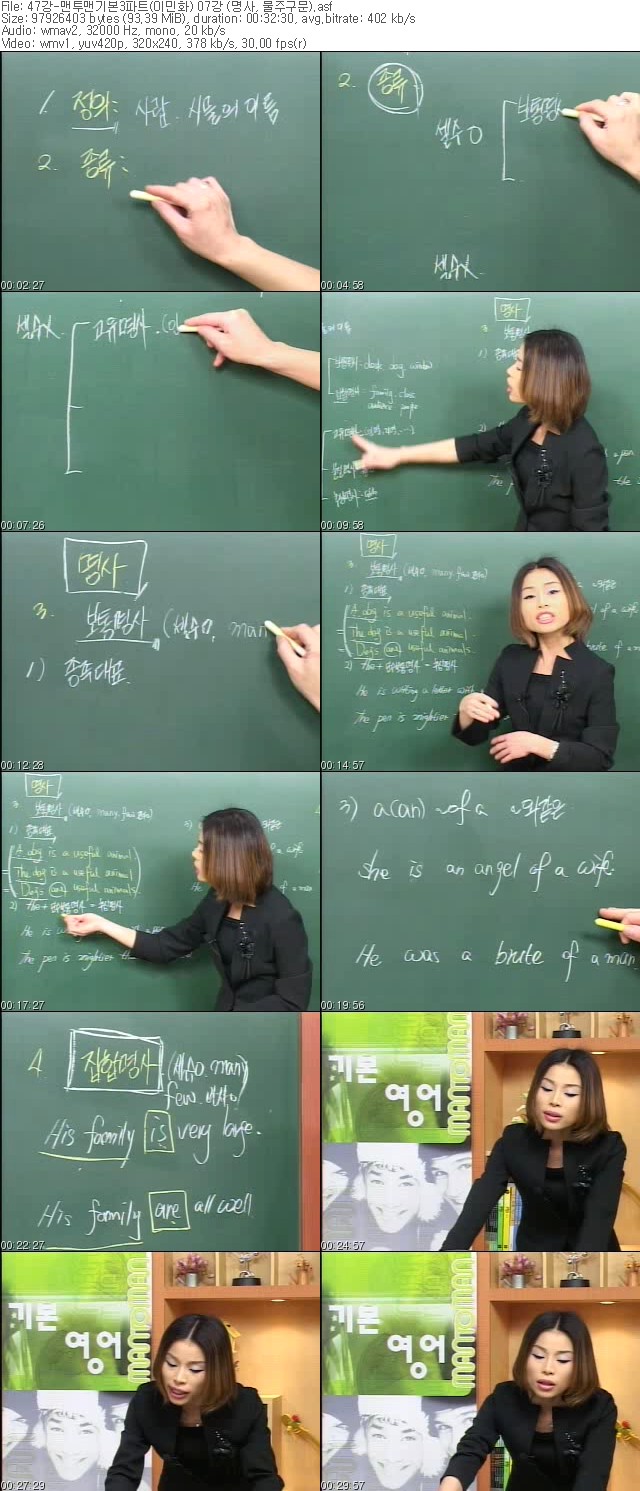 File: 47강-맨투맨기본3파트(이민화) 07강 (명사, 물주구문).asf
Size: 97926403 bytes (93,39 MiB), duration: 00:32:30, avg,bitrate: 402 kb/s
Audio: wmav2, 32000 Hz, mono, 20 kb/s
Video: wmv1, yuv420p, 320x240, 378 kb/s, 30,00 fps(r)
1. 정의: 사람. 사물의 이름
2. 종류:
00:02:27
2. 종류:
셀수 O
보통명사
셀수X
00:04:58
셀수X
고유명사.
00:07:26
명사
3. 보통명사
1) 종족대표
보통명사 - desk dog window
집합명사 - family class
audience people
고유명사
물질명사
추상명사
2)
00:09:58
명사
3. 보통명사 (셀수O, man
1) 종족대표.
00:12:28
명사
3. 보통명사 (셀수O, many, few
1) 종족대표
A dog is a useful animal.
The dog is a useful animal.
Dogs are useful animals.
2) The + 단수보통명사 = 추상명사
He is writing a letter with
The pen is mightier
00:14:57
명사
3. 보통명사 (셀수O, many, few
1) 종족대표
A dog is a useful animal.
The dog is a useful animal.
Dogs are useful animals.
2) The + 단수보통명사 = 추상명사
He is
The pen is mightier
00:17:27
3) a(an) ~ of a ~와같은
She is an angel of a wife.
He was a brute of a man
00:19:56
4. 집합명사 (셀수O. many
few.
His family is very large.
His family are all well
00:22:27
기본
영어
MANTOMAN
00:24:57
기본
영어
MANTOMAN
00:27:29
기본
영어
MANTOMAN
00:29:57